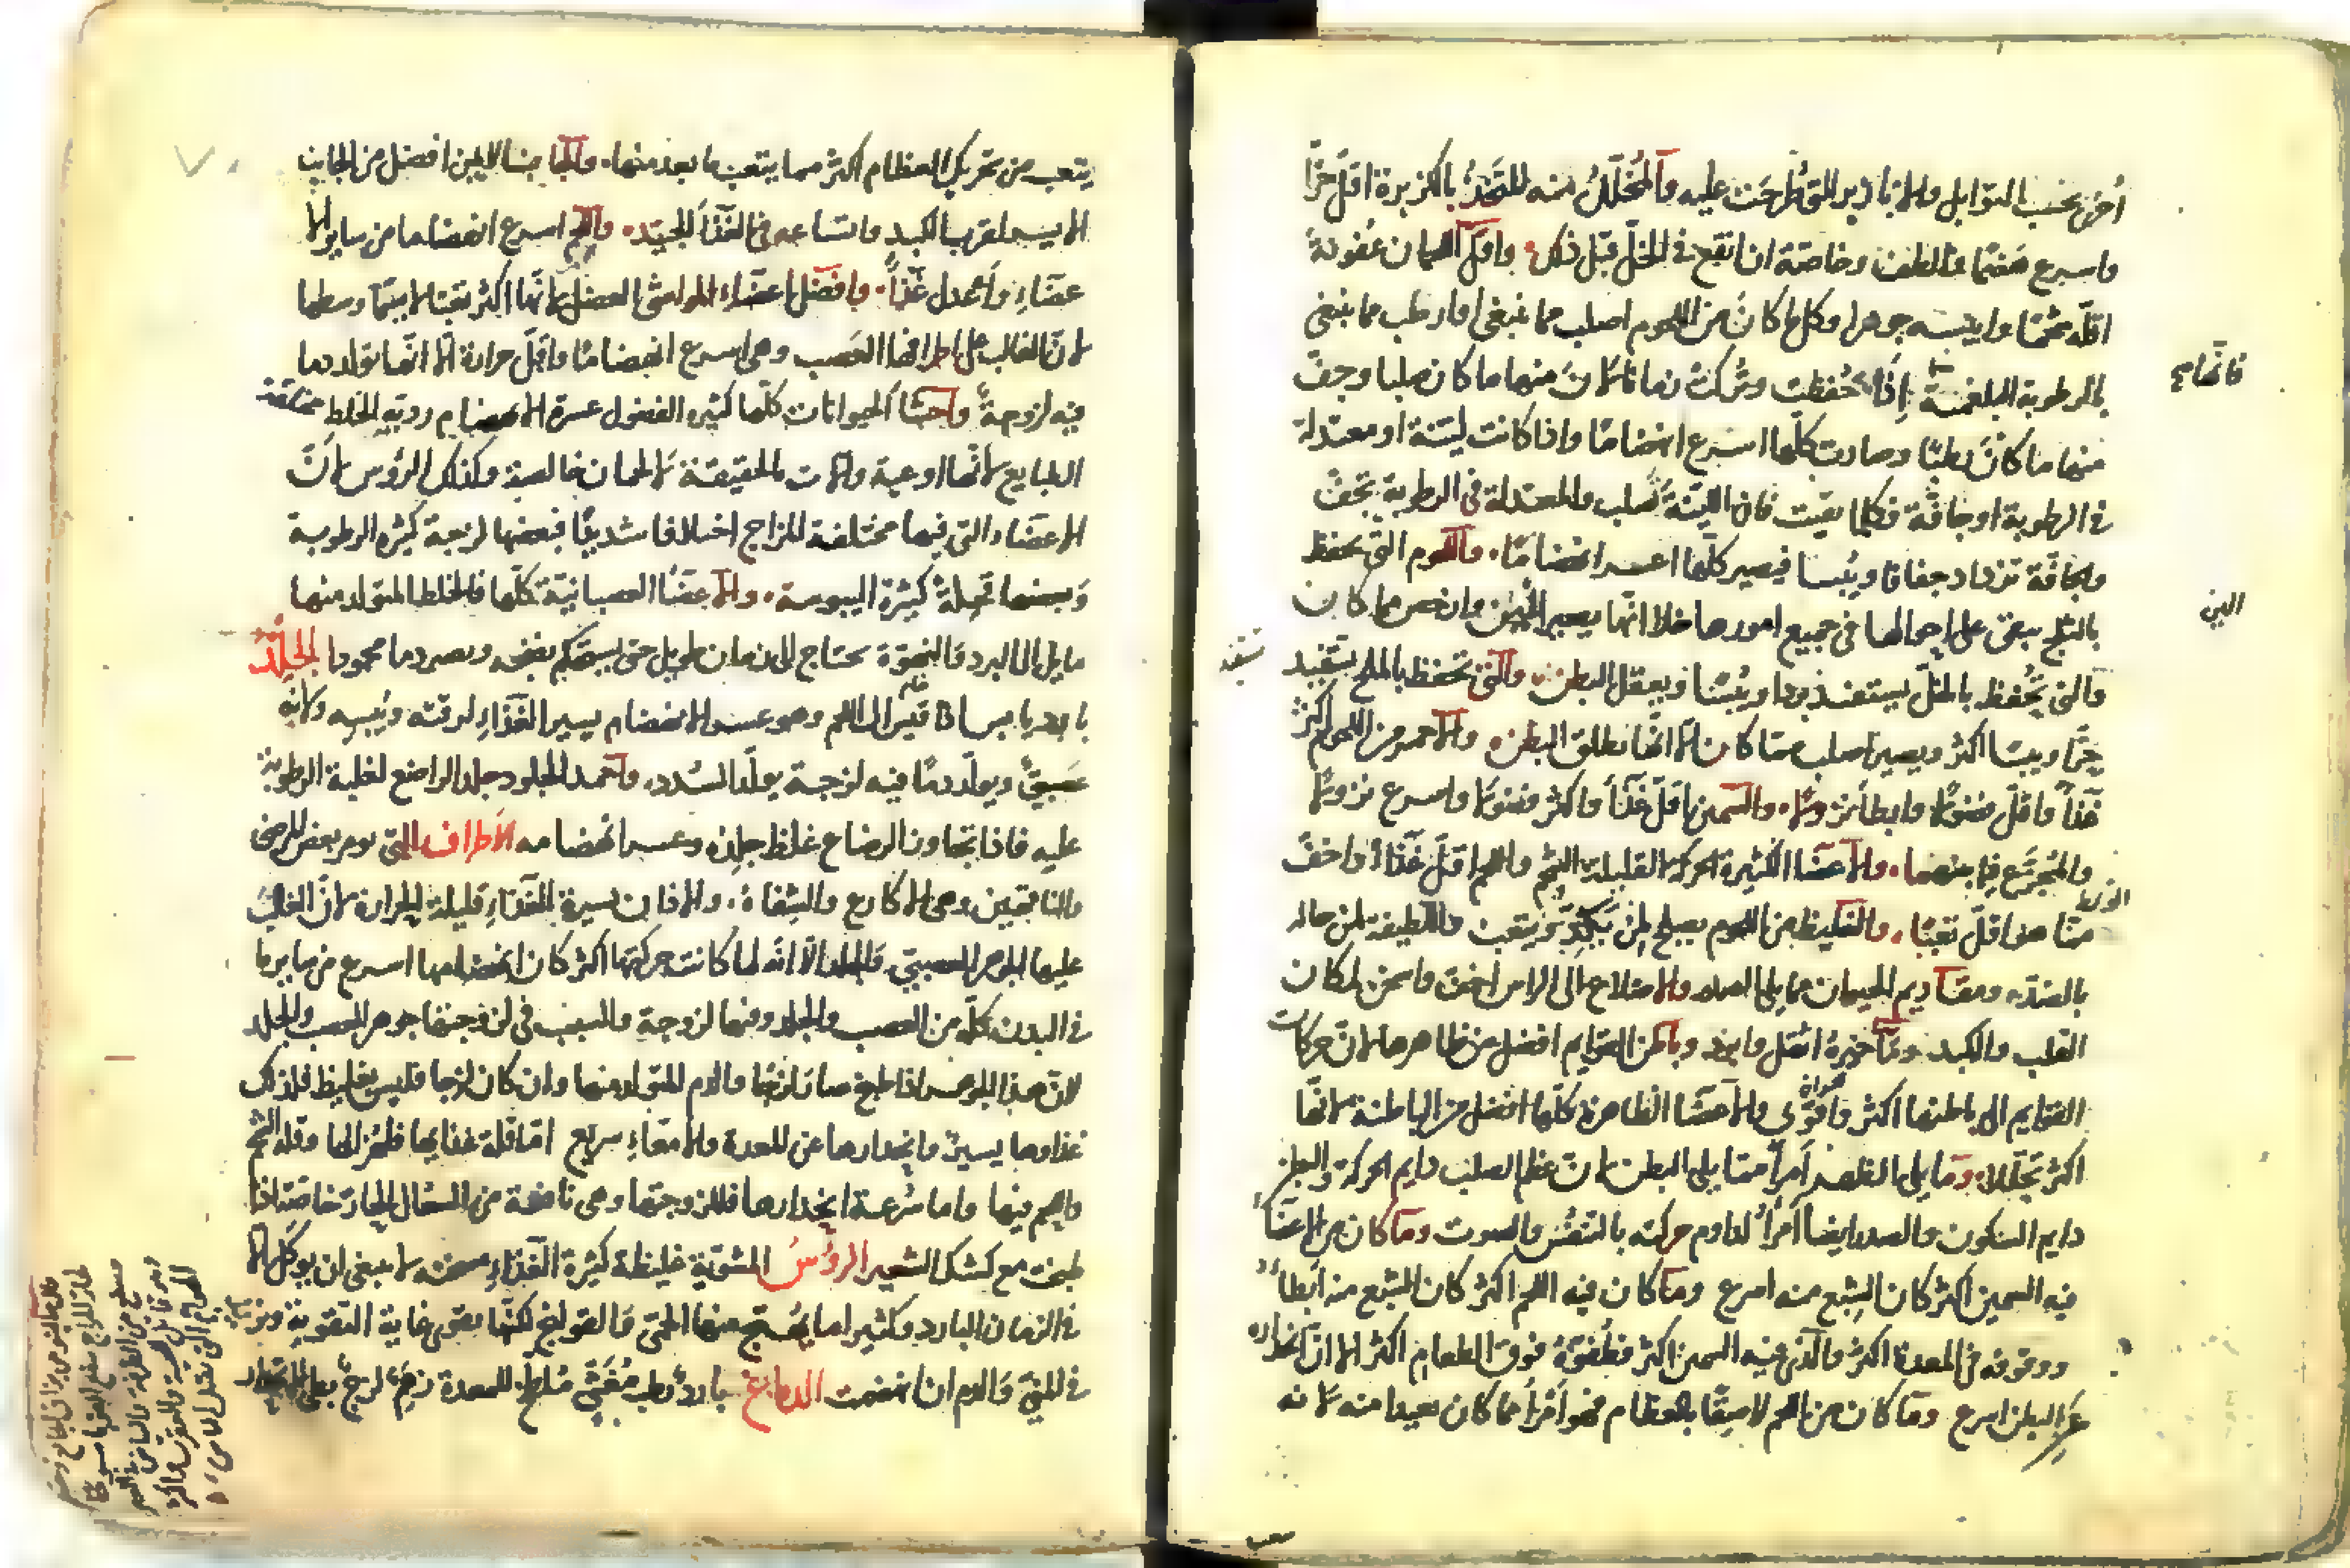 أخر بحسب التوابل والابازير التي طرحت عليه والمخلل منه المتخذ بالكزبرة اقل حرّا
واسرع هضما والطف وخاصة ان انقع في الخل قبل ذلك واقل اللحمان عفونة
اقله شحما وايبسه جوهرا وكلما كان من اللحوم اصلب مما ينبغي او ارطب مما ينبغي
بالرطوبة البلغمية اذا حُفظت وتُركت زمانا لان منها ما كان صلبا وجف
فانها
منها ما كان رطبا وصارت كلها اسرع انهضاما واذا كانت لينة او معتدلة
في الرطوبة او جافة فكلما بقيت فان اللينة تصلب والمعتدلة في الرطوبة تجف
والجافة تزداد جفافا ويُبسا فيصير كلها اعسر انهضاما والحوم التي تحفظ
بالثلج يبقى على احوالها في جميع امورها خلا انها يصير وان خص مما كان
والتي تُحفظ بالخل يستفيد بردا ويُبسا ويعقل البطن والتي تحفظ بالملح يستفيد
حرّا ويبسا اكثر ويصير اصلب مما كان الا انها يطلق البطن والاحمر من اللحوم اكثر
غذآ واقل فضولا وابطأ نزولا والسمين اقل غذآ واكثر فضولا واسرع نزولا
والمجزّع فيما بينهما والاعضا الكثيرة الحركة القليلة الشحم واللحم اقل غذاء واخف
مما هو اقل تعبا والغليظ من اللحوم يصلح لمن يكدّ ويتعب واللطيفة لمن حاله
بالضد ومقاديم الحيوان مما يلي الصدر والاضلاع الى الراس اخف واسخن لمكان
القلب والكبد ومآخيره اثقل وابرد وباطن القوايم افضل من ظاهرها لان حركات
القوايم الى باطنها اكثر واقوى والاعضا الظاهرة كلها افضل من الباطنة لانها
اكثر تحللا وما يلي الظهر امرأ مما يلي البطن لان عظم الصلب دايم الحركة والبطن
دايم السكون والصدر ايضا امرأ لدوام حركته بالتنفس والصوت وما كان من الاعضآ
فيه السمين اكثر كان الشبع منه اسرع وما كان فيه اللحم اكثر كان الشبع منه ابطأ
ووقوفه في المعدة اكثر والذي فيه السمين اكثر فطفوّه فوق الطعام اكثر الا ان انحداره
عن البطن اسرع وما كان من اللحم لاصقا بالعظام فهو امرأ مما كان بعيدا منه لانه
يتعب من تحريك العظام اكثر مما يتعب ما بعد منها والجانب الايمن افضل من الجانب
الايسر لقرب الكبد وانتشاعه في الغذآ الجيّد واللحم اسرع انهضاما من ساير الا
عضاء واعدل غذآ وافضل اعضاء المواشي العضل لانها اكثر تعبا لا سيّما وسطها
لان الغالب على اطرافها العصب وهي اسرع انهضاما واقل حرارة الا انها تولد دما
فيه لزوجة واحشا الحيوانات كلها كثيرة الفضول عسرة الانهضام رديّة الخلط مختلفة
الطبايع لانها اوعية وآلات بالحقيقة لا لحمان خالصة وكذلك الرؤس لان
الاعضاء التي فيها مختلفة المزاج اختلافا شديدا فبعضها لزجة كثيرة الرطوبة
وبعضها قحلة كثيرة اليبوسة والاعضا العصبانية كلها فالخلط المتولد منها
مايل الى البرد والنهوّة يحتاج الى زمان طويل حتى يستحكم نضجه ويصير دما محمودا الجلد
بارد يابس اذا قيس الى اللحم وهو عسر الانهضام يسير الغذاء لرقته ويُبسه ولانه
عصبيّ ويولد دما فيه لزوجة يولد السدد واحمد الجلود جلد الراضع لغلبة الرطوبة
عليه فاذا تجاوز الرضاع غلظ جلده وعسر انهضامه الاطراف التي يؤمر بعض المرضى
والناقهين وهي الاكارع والشفاه والاذان يسيرة الغذاء قليلة الحرارة لان الغالب
عليها الجوهر العصبيّ والجلد الا انه لما كانت حركتها اكثر كان انهضامها اسرع من ساير ما
في البدن كله من العصب والجلد وفيها لزوجة والسبب في لزوجتها جوهر العصب والجلد
لان هذا الجوهر اذا طبخ صار لزجا والدم المتولد منها وان كان لزجا فليس بغليظ فلذلك
غذاوها يسير وانحدارها عن المعدة والامعاء سريع اما قلة غذايها فلهزالها وقلة الشحم
واللحم فيها واما سُرعة انحدارها فللزوجتها وهي نافعة من السعال الحار خاصة اذا
طبخت مع كشك الشعير الرؤس المشوية غليظة كثيرة الغذاء مسخنة لا ينبغي ان يوكل الا
في الزمان البارد وكثيرا ما يهيج منها الحمى والقولنج لكنها يقوى غاية التقوية ويزيد
في المنيّ والدم ان انهضمت الدماغ بارد رطب مُغثّي مُلطّخ للمعدة زهم لزج بطي الانحدار